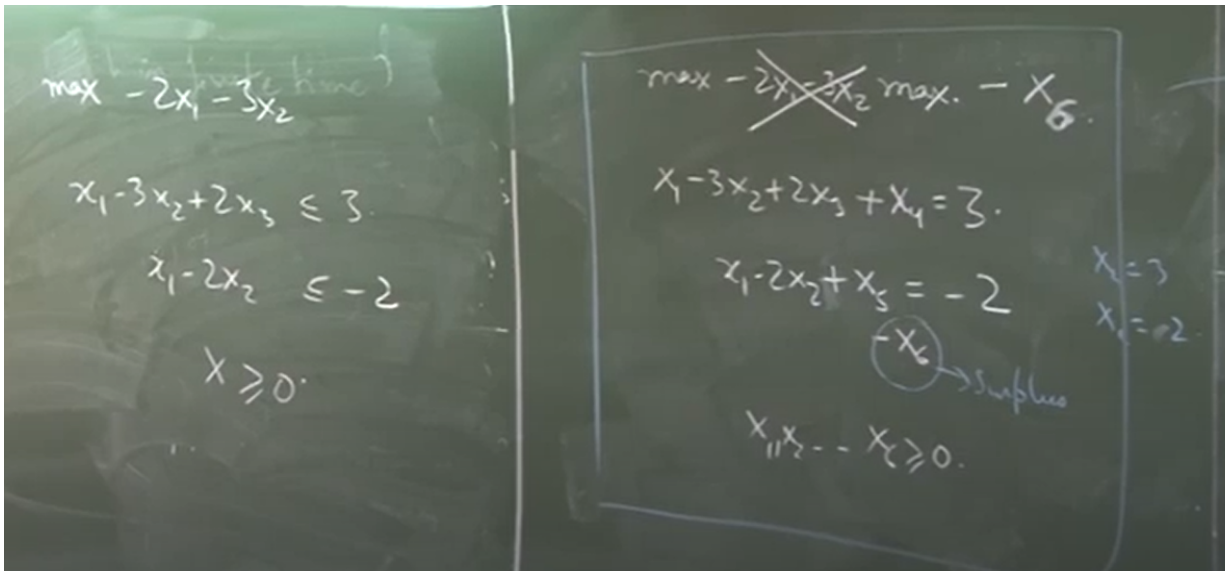 max -2x₁ -3x₂
x₁-3x₂+2x₃ ≤ 3.
x₁-2x₂ ≤ -2
X ≥ 0.
max -2x₁-3x₂ max. - X₆.
x₁-3x₂+2x₃ +x₄ = 3.
x₁-2x₂+x₅ = -2
-x₆
→ Surplus
x₁,x₂ -- x₆ ≥ 0.
= 3
= -2